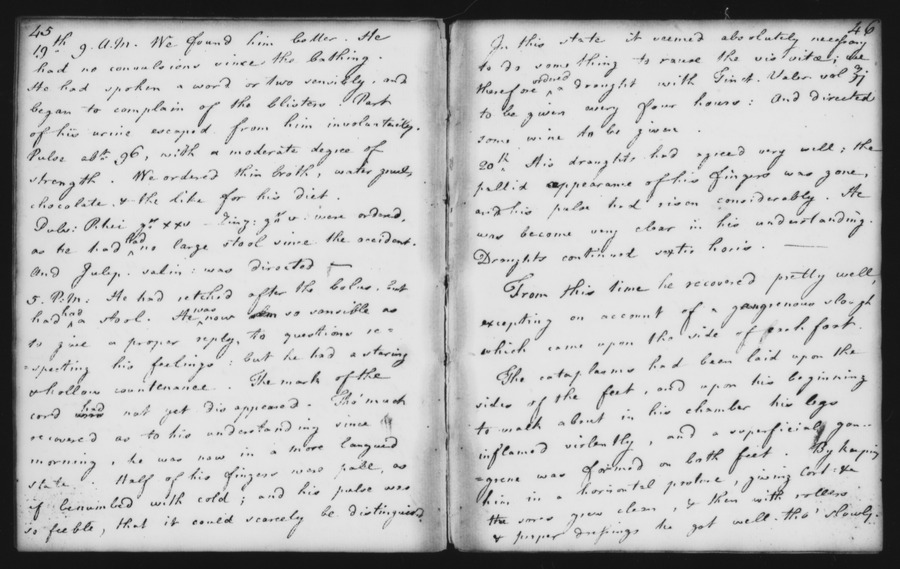 45
19th 9. A.M. We found him better. He
had no convulsions since the bathing.
He had spoken a word or two sensibly, and
began to complain of the blisters. Part
of his urine escaped from him involuntarily.
Pulse abt. 96, with a moderate degree of
strength. We ordered him broth, water gruel,
chocolate, & the like for his diet.
Pulv: Rhei gr xxv Zing: gr v: were ordered,
as he had had no large stool since the accident.
And Julep. salin: was directed —
5. P.M. He had retched after the bolus, but
had had a stool. He was now so sensible as
to give a proper reply, to questions re=
=specting his feelings: but he had a staring
& hollow countenance. The mark of the
cord had not yet disappeared. Tho' much
recovered as to his understanding since
morning, he was now in a more languid
state. Half of his fingers were pale, as
if benumbed with cold; and his pulse was
so feeble, that it could scarcely be distinguished.
46
In this state it seemed absolutely necessary
to do something to raise the vis vitæ; we
therefore ordered a draught with Tinct. Valer vol ʒj
to be given every four hours: And directed
some wine to be given.
20th His draughts had agreed very well; the
pallid appearance of his fingers was gone,
and his pulse had risen considerably. He
was become very clear in his understanding.
Draughts continued sextis horis. —
From this time he recovered pretty well,
excepting on account of a gangrenous slough
which came upon the side of each foot.
The cataplasms had been laid upon the
sides of the feet, and upon his beginning
to walk about in his chamber his legs
inflamed violently, and a superficial gan=
=grene was formed on both feet. By keeping
him in a horizontal posture, giving Cort: &c
the sores grew clean, & then with rollers
& proper dressings he got well, tho' slowly.